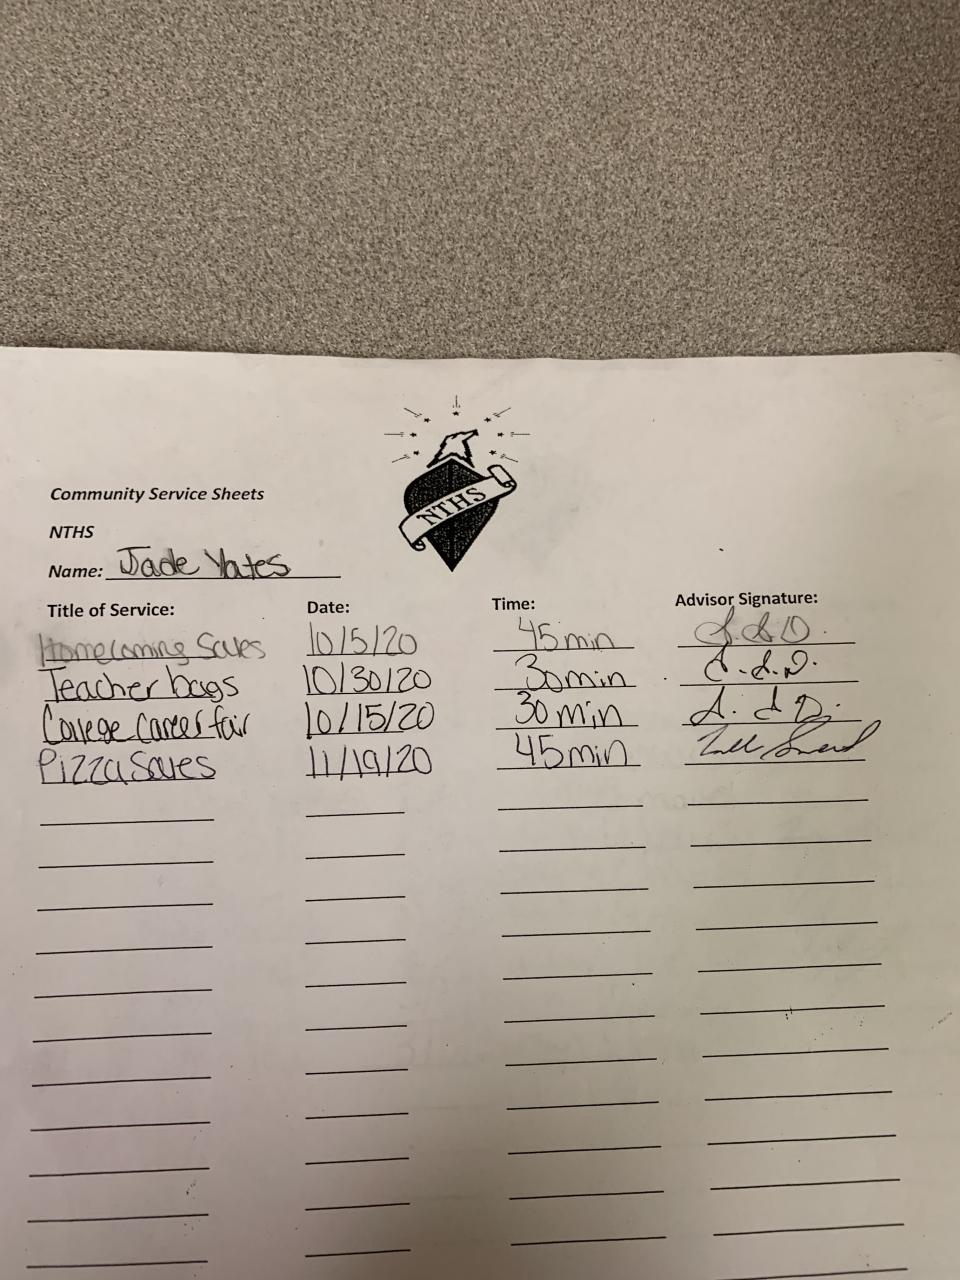 NTHS
Community Service Sheets
NTHS
Name: Jade Yates
Title of Service: Date: Time: Advisor Signature:
Homecoming Sales 10/5/20 45min
Teacher bags 10/30/20 30min
College career fair 10/15/20 30min
Pizza Sales 11/19/20 45min